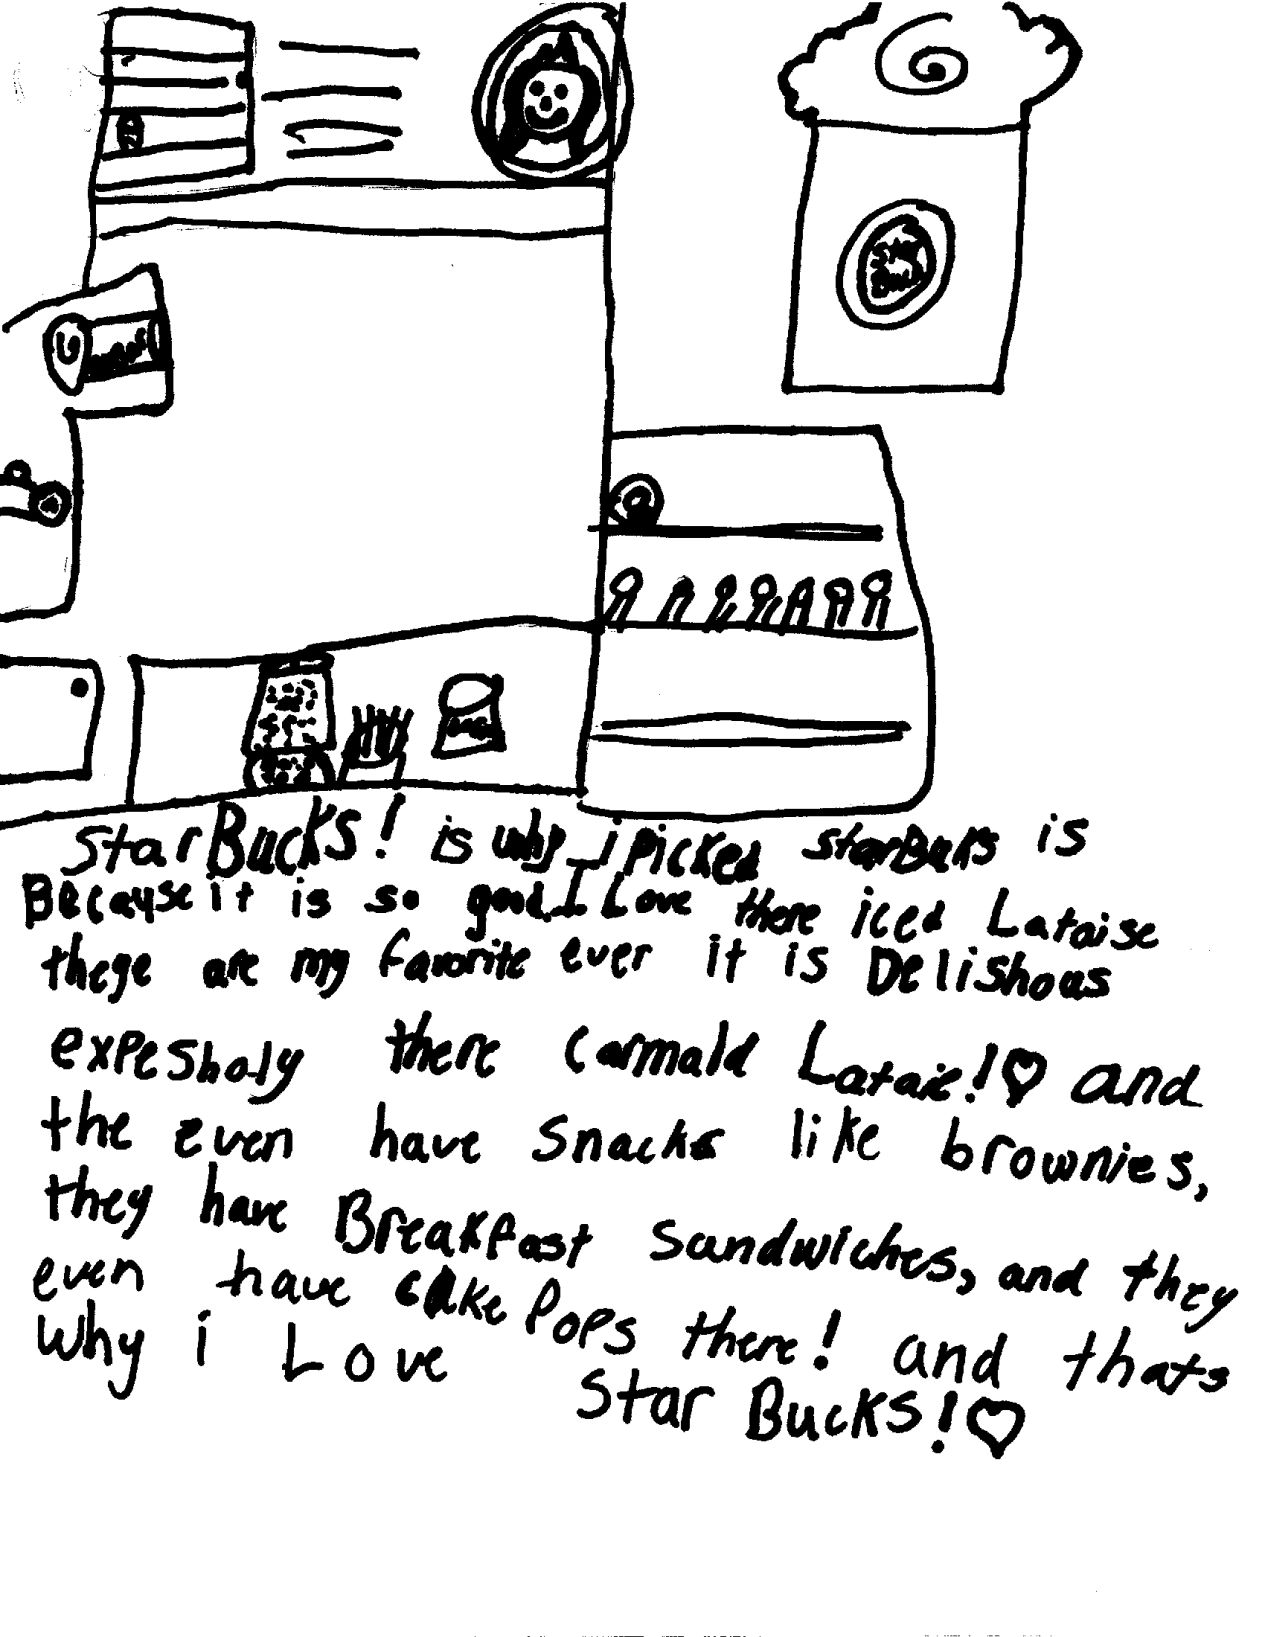 Star
Bucks
StarBucKS! is why i picked starBuks is
Because it is so good. I Love there iced Lataise
thege are my favorite ever it is Delishoas
expesholy there carmald Lataie!♡ and
the even have snacks like brownies,
they have Breakfast sandwiches, and they
even have cake Pops there! and thats
why i Love
Star BucKS!♡